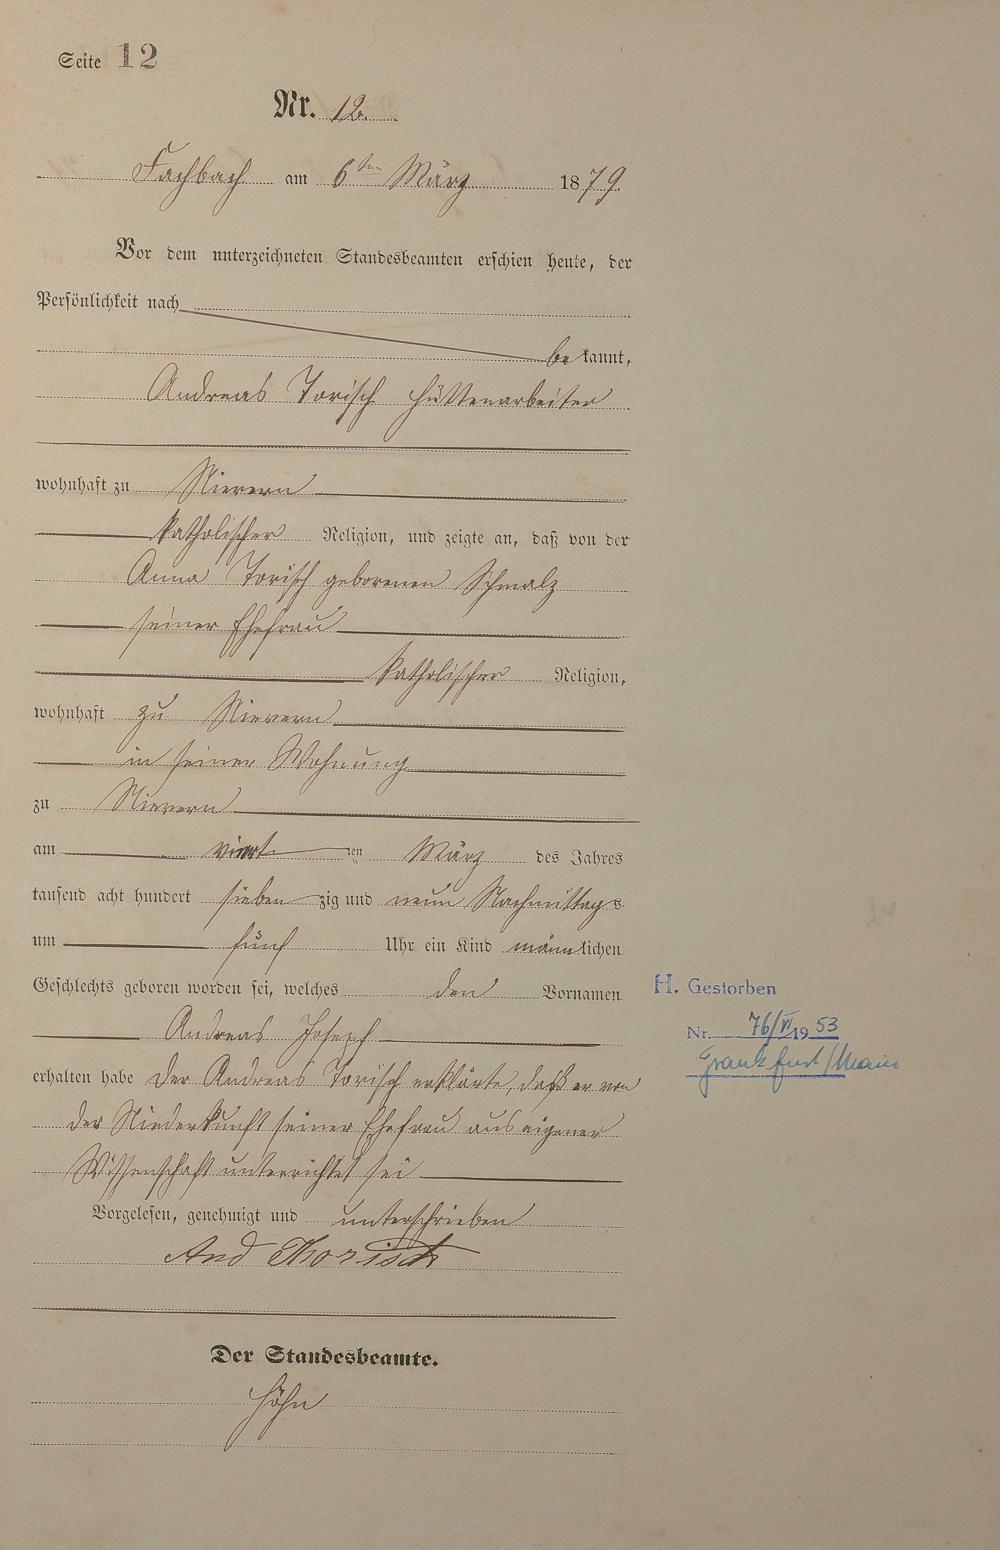 Seite 12
Nr. 12.
Fachbach am 6ten März 1879.
Vor dem unterzeichneten Standesbeamten erschien heute, der
Persönlichkeit nach
bekannt,
Andreas Torisch Hüttenarbeiter
wohnhaft zu Nievern
katholischer Religion, und zeigte an, daß von der
Anna Torisch geborenen Schmalz
seiner Ehefrau
katholischer Religion,
wohnhaft zu Nievern
in seiner Wohnung
zu Nievern
am vierten März des Jahres
tausend acht hundert siebenzig und neun Nachmittags
um fünf Uhr ein Kind männlichen
Geschlechts geboren worden sei, welches den Vornamen
Andreas Joseph
erhalten habe Der Andreas Torisch erklärte, daß er von
der Niederkunft seiner Ehefrau aus eigener
Wissenschaft unterrichtet sei
Vorgelesen, genehmigt und unterschrieben
And Thorisch
Der Standesbeamte.
Höhn
H. Gestorben
Nr. 76/VI 1953
Frankfurt/Main